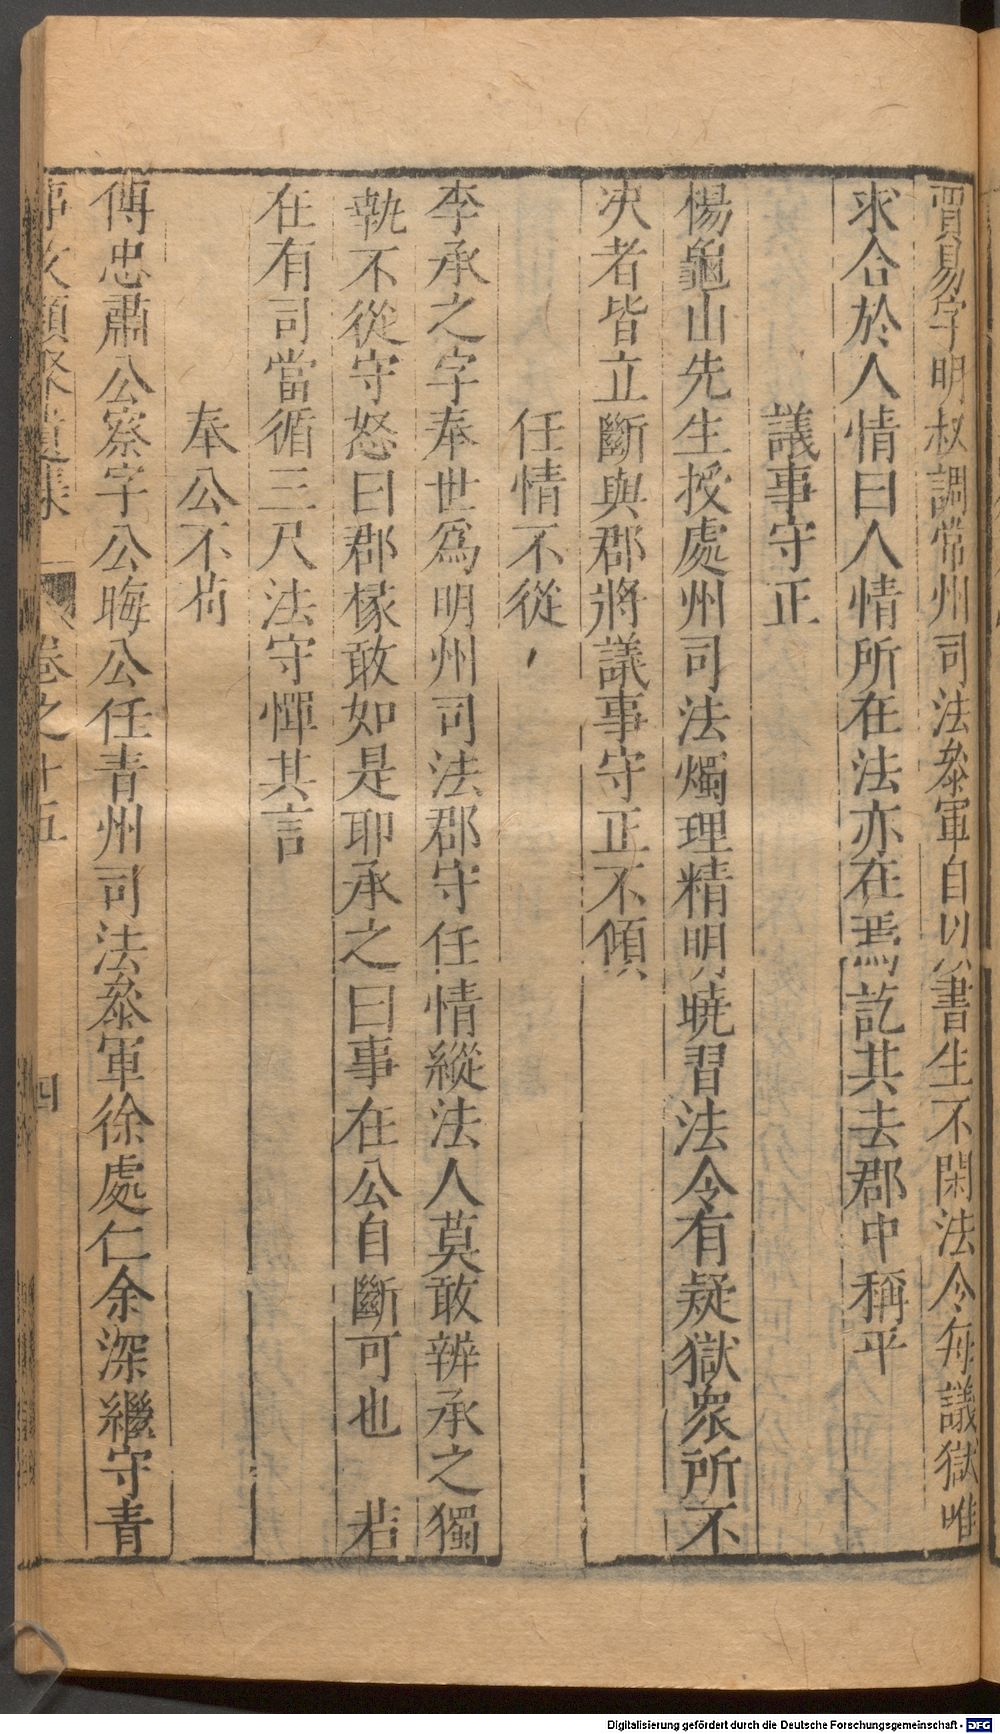 賈易字明叔調常州司法叅軍自以書生不閑法令每議獄唯
求合於人情曰人情所在法亦在焉訖其去郡中稱平
議事守正
楊龜山先生授處州司法燭理精明曉習法令有疑獄衆所不
决者皆立斷與郡將議事守正不傾
任情不從
李承之字奉世爲明州司法郡守任情縱法人莫敢辨承之獨
執不從守怒曰郡椽敢如是耶承之曰事在公自斷可也 若
在有司當循三尺法守憚其言
奉公不茍
傅忠肅公察字公晦公任青州司法叅軍徐處仁余深繼守青
事文類聚遺集 卷之十五 四
Digitalisierung gefördert durch die Deutsche Forschungsgemeinschaft - DFG